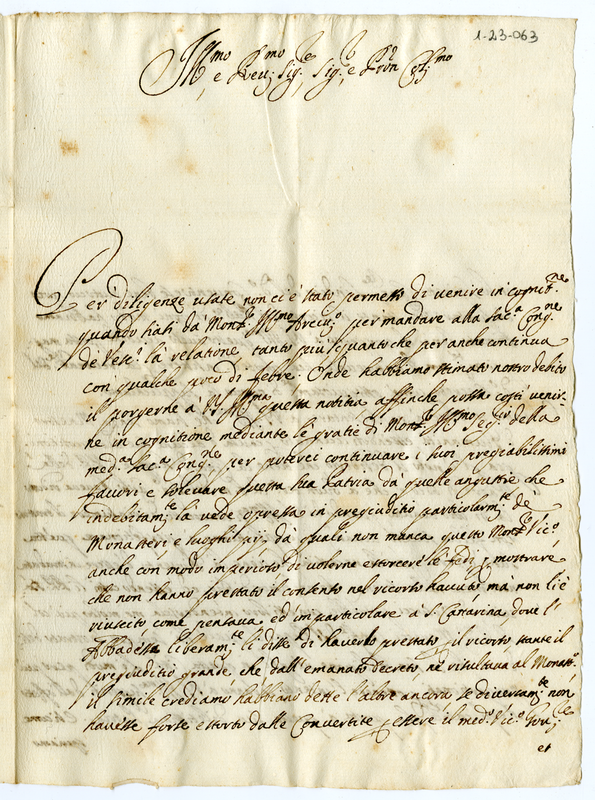 1-23-063
Ill.mo e Rev.mo Sig.re Sig.re e Pron Col.mo
Per diligenze usate non ci è stato permesso di venire in cognit.ne
quando hati da Mons.r Ill.mo Arciv.o per mandare alla Sac.a Cong.ne
de Vesc.i la relatione, tanto più quanto che per anche continua
con qualche poco di febre. Onde habbiamo stimato nostro debito
il porgerne à VS Ill.ma questa notitia affinche possa costì venir-
ne in cognitione mediante le gratie di Mons.r Ill.mo Seg.rio della
med.a Sac.a Cong.ne per poterci continuare i suoi pregiabilissimi
favori e solevare questa sua Patria da quelle angustie che
indebitam.te la vede opressa in pregiuditio particolarm.te de
Monasteri, e luoghi pij, da quali non manca questo Mons.r Vic.o
anche con modo imperioso di volerne estorcere le fedi p mostrare
che non hanno prestato il consenso nel ricorso havuto, mà non li è
riuscito come pensava, ed in particolare à S. Cattarina dove l'
Abbadessa liberam.te li disse di haverlo prestato, il ricorso, stante il
pregiuditio grande, che dall'emanato Decreto ne risultava al Monast.o
il simile crediamo habbiano dette l'altre ancora, se diversam.te non
havesse forse estorto dalle Convertite p essere il med.o Vic.o
et